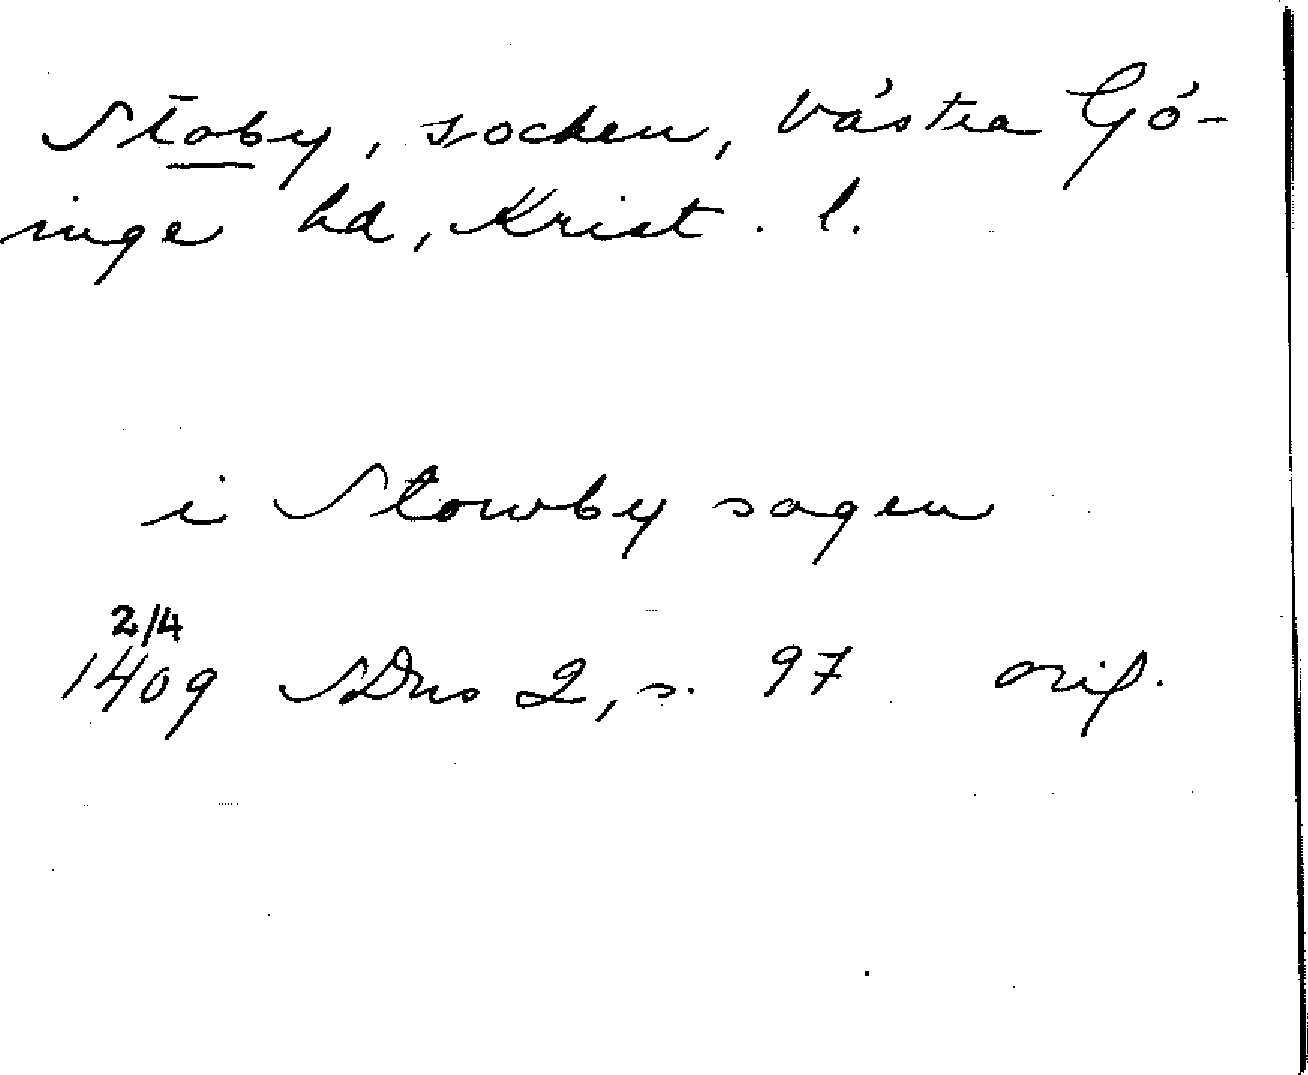 Stoby, socken, Västra Gö-
inge hd, Krist. l.
i Stowby sogen
2/4
1409 SDns 2, s. 97 orig.